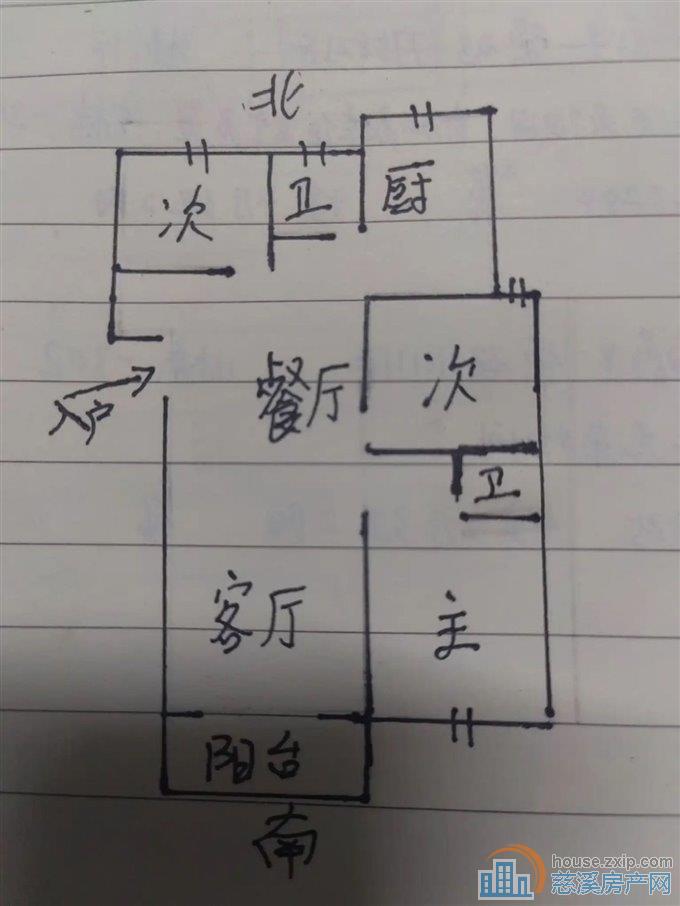 北
次
卫
厨
餐厅
次
入户
卫
客厅
主
阳台
南
house.zxip.com
慈溪房产网